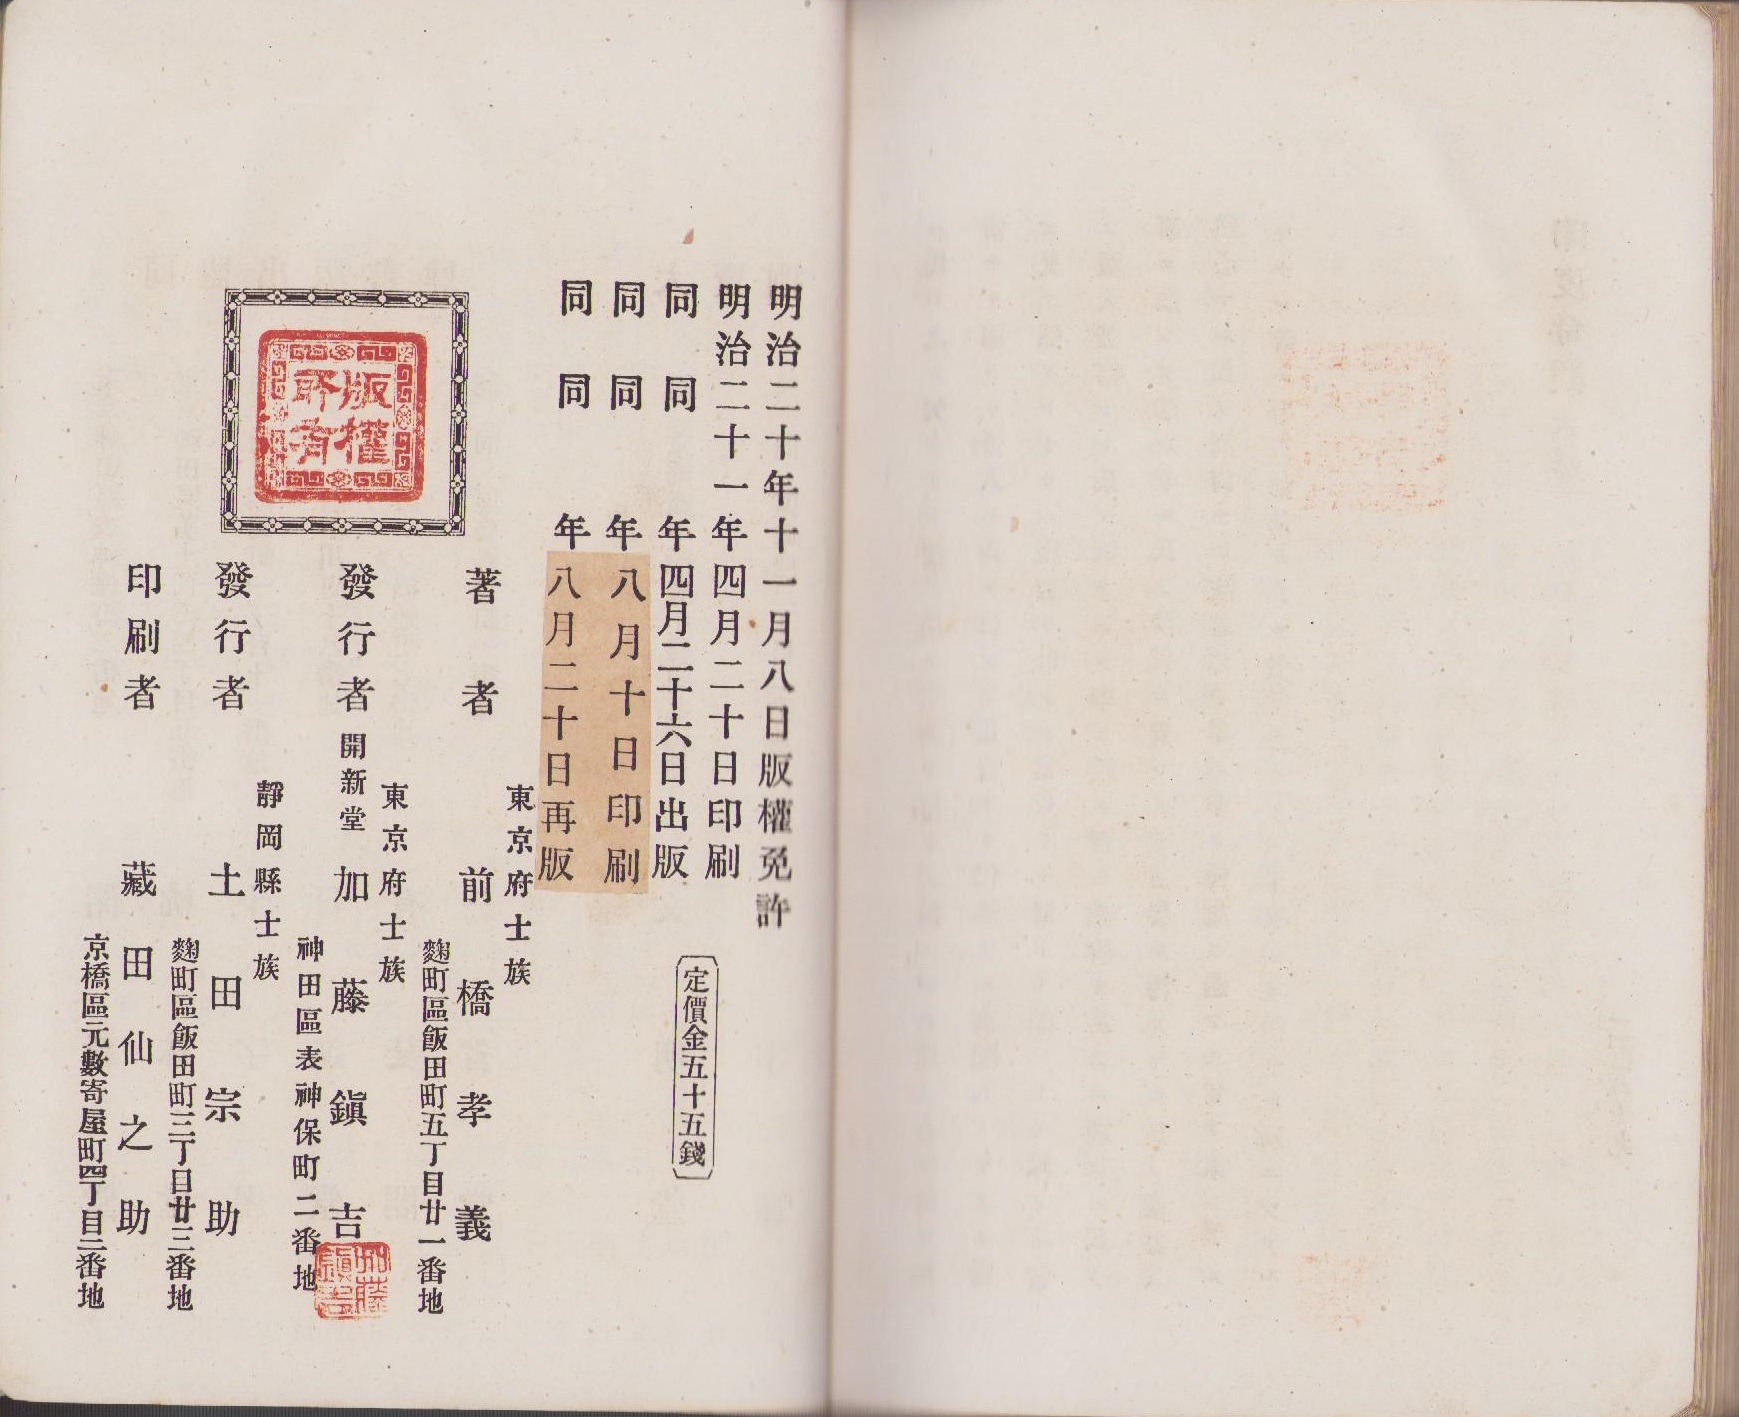 明治二十年十一月八日版權免許
明治二十一年四月二十日印刷
同 同 年四月二十六日出版
同 同 年八月十日印刷
同 同 年八月二十日再版
定價金五十五錢
版權
所有
東京府士族
著者 前橋孝義
麴町區飯田町五丁目廿一番地
東京府士族
發行者 開新堂 加藤鎭吉
神田區表神保町二番地
加藤
鎭吉
靜岡縣士族
發行者 土田宗助
麴町區飯田町三丁目廿三番地
印刷者 藏田仙之助
京橋區元數寄屋町四丁目二番地